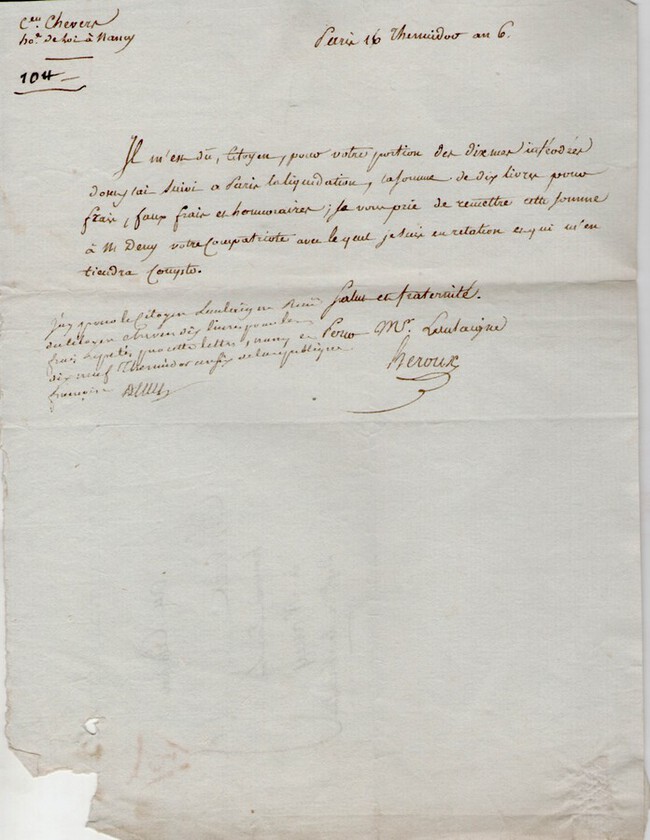 Cen. Chevers
ho. de loi à Nancy
10
Paris 16 Thermidor an 6.
Il m'est dû, Citoyen, pour votre portion des dixmes inféodées
dont j'ai suivi a Paris la liquidation, la somme de dix livres pour
frais, faux frais et honnoraires; Je vous prie de remettre cette somme
à M. Deny votre Compatriote avec lequel je suis en relation et qui m'en
tiendra Compte.
Salut et fraternité.
Pour Mr. Laulaigne
Heroux
J'ay pour le Citoyen Laulaigne Reçu
du Citoyen Chevers dix livres pour les
frais Rappelés par cette lettre, nancy ce
dix neuf Thermidor an six de la republique
françoise